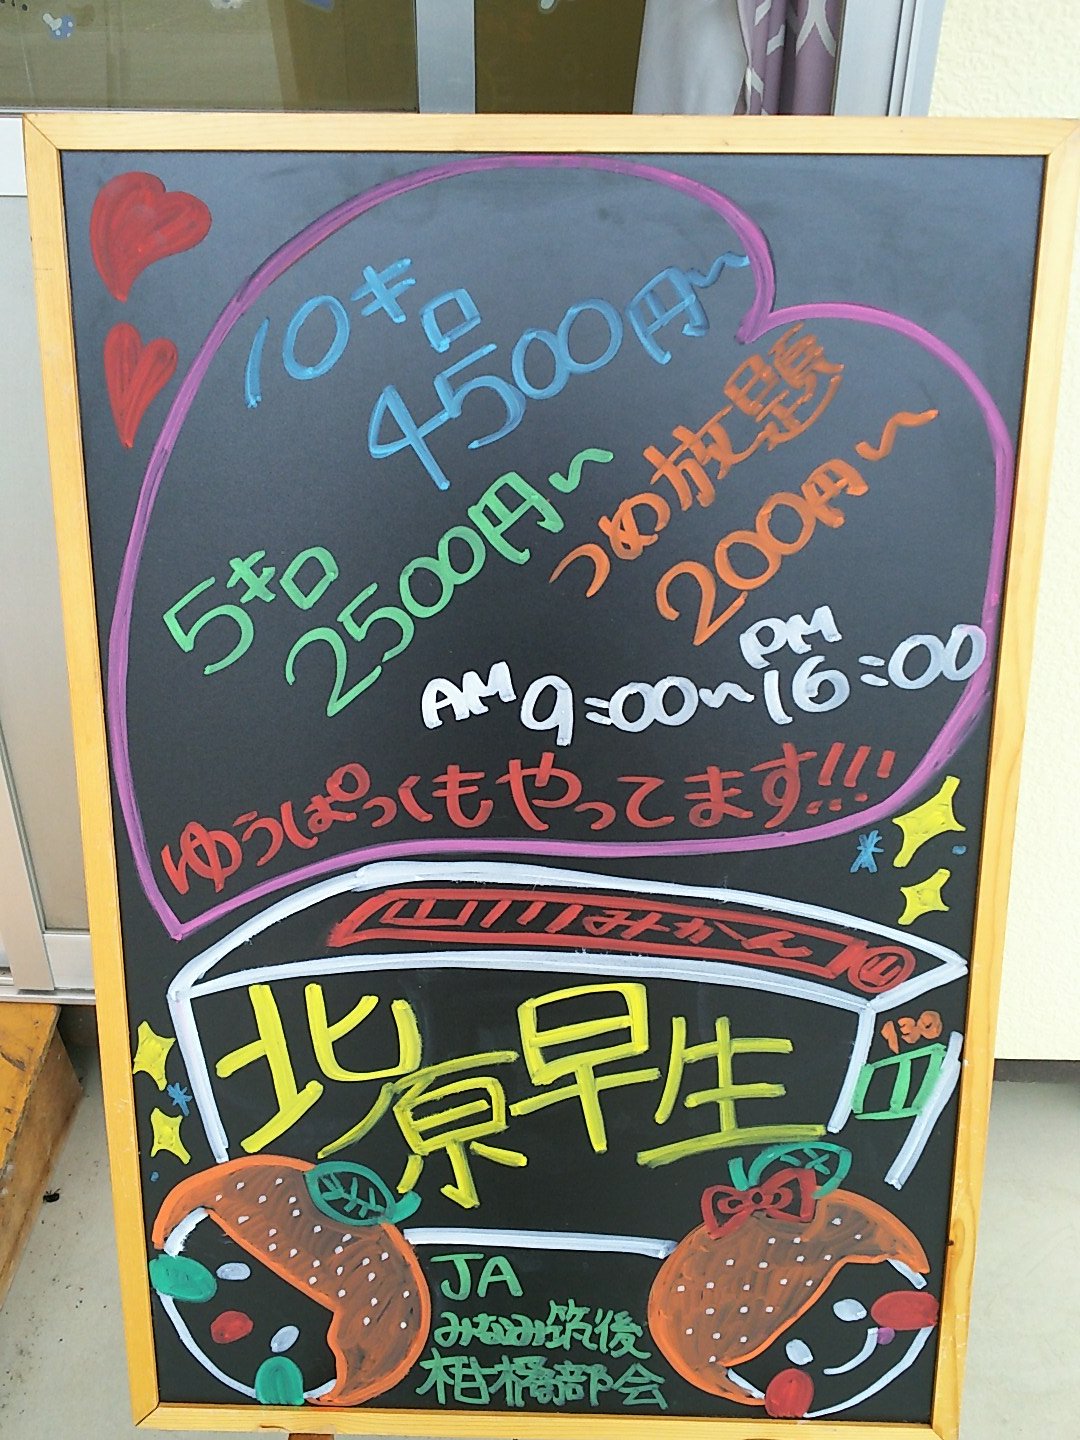 10キロ
4500円〜
つめ放題
200円〜
5キロ
2500円〜
AM9:00〜PM16:00
ゆうぱっくもやってます!!!
山川みかん 山
北原早生
130
JA
みなみ筑後
柑橘部会